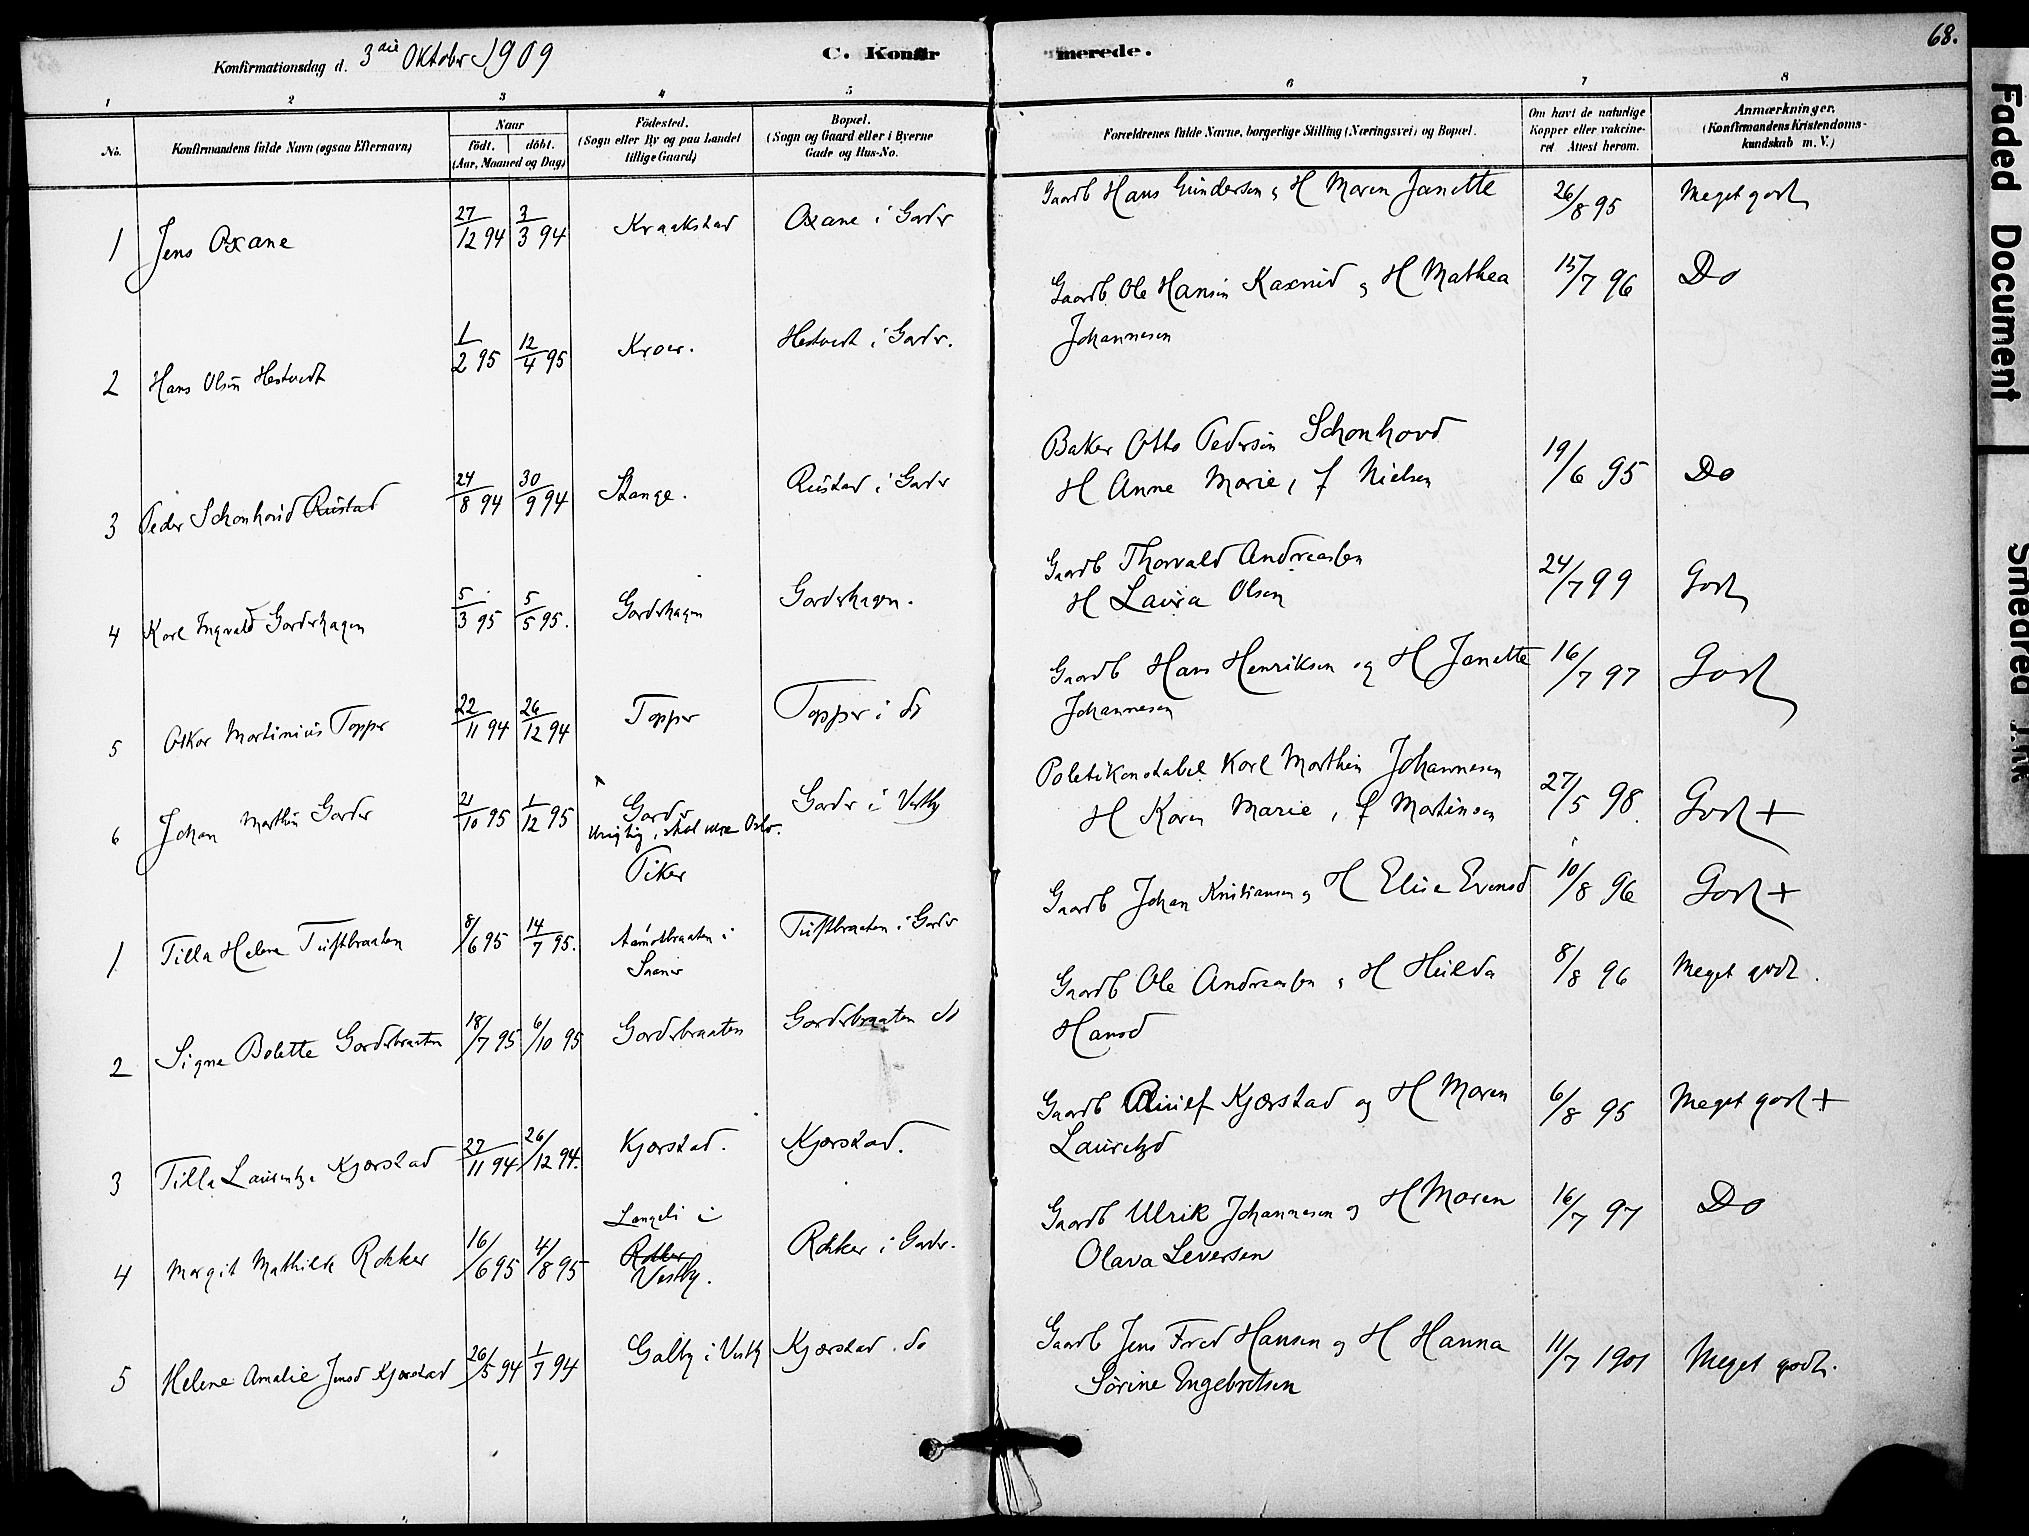 68.
Konfirmationsdag d. 3die Oktober 1909
C. Konfir
merede.
1 2 3 4 5 6 7 8
No.
Konfirmandens fulde Navn (ogsaa Efternavn)
Naar
født. døbt.
(Aar, Maaned og Dag)
Fødested.
(Sogn eller By og paa Landet
tillige Gaard)
Bopæl.
(Sogn og Gaard eller i Byerne
Gade og Hus-No.
Forældrenes fulde Navne, borgerlige Stilling (Næringsvei) og Bopæl.
Om havt de naturlige
Kopper eller vakcine-
ret Attest herom.
Anmærkninger.
(Konfirmandens Kristendoms-
kundskab m. V.)
1 Jens Oxane 27/12 94 3/3 94 Kraakstad Oxane i Garder Gaardb Hans Gundersen og H Maren Janette 26/8 95 Meget godt
2 Hans Olsen Hestvedt 1/2 95 12/4 95 Kroer. Hestvedt i Garder. Gaardb Ole Hansen og H Mathea 15/7 96 Do
Johannesen
3 Peder Schonhovd Rustad 24/8 94 30/9 94 Stange. Rustad i Garder Baker Otto Pedersen Schonhovd 19/6 95 Do
H Anne Marie, f Nielsen
4 Karl Ingvald Garderhagen 5/3 95 5/5 95. Garderhagen Garderhagen. Gaardb Thorvald Andreassen 24/7 99 Godt
H Laura Olsen
5 Oskar Martinius Topper 22/11 94 26/12 94 Topper Topper i do Gaardb Hans Henriksen og H Janette 16/7 97 Godt
Johannesen
6 Johan Marthin Garder 21/10 95 1/12 95 Garder Garder i Vestby Politikonstabel Karl Marthin Johannesen 27/5 98. Godt +
Urigtig, skal være Oslo.
H Karen Marie, f Martinsen
Tiker
1 Tilla Helene Tuftbraaten 8/6 95 14/7 95. Aamotbraaten i Tuftbraaten i Garder Gaardb Johan Kristiansen og H Elise Evensd 10/8 96 Godt +
Saaner
2 Signe Bolette Garderbraaten 18/7 95 6/10 95 Garderbraaten Garderbraaten do Gaardb Ole Andreassen og H Hulda 8/8 96 Meget godt.
Hansd
3 Tilla Laurentze Kjærstad 27/11 94 26/12 94. Kjærstad. Kjærstad. Gaardb Kjærstad og H Maren 6/8 95 Meget godt +
Lauretzd
4 Margit Mathilde Rokker 16/6 95 4/8 95 Langeli i Rokker Vestby. Rokker i Garder. Gaardb Ulrik Johannesen og H Maren 16/7 97 Do
Olava Seversen
5 Helene Amalie Jensd Kjærstad 26/5 94 1/7 94 Galby i Vestby Kjærstad do Gaardb Jens Fred Hansen og H Hanna 11/7 1901 Meget godt.
Sørine Engebretsen
Faded Document
Smeared Ink